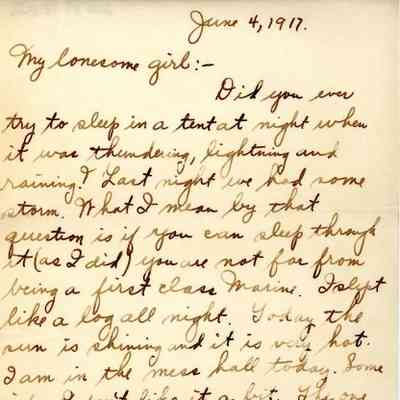 June 4, 1917.
My lonesome girl:-
Did you ever
try to sleep in a tent at night when
it was thundering, lightning and
raining? Last night we had some
storm. What I mean by that
question is if you can sleep through
it (as I did) you are not far from
being a first class Marine. I slept
like a log all night. Today the
sun is shining and it is very hot.
I am in the mess hall today. Some
job. I don't like it a bit.